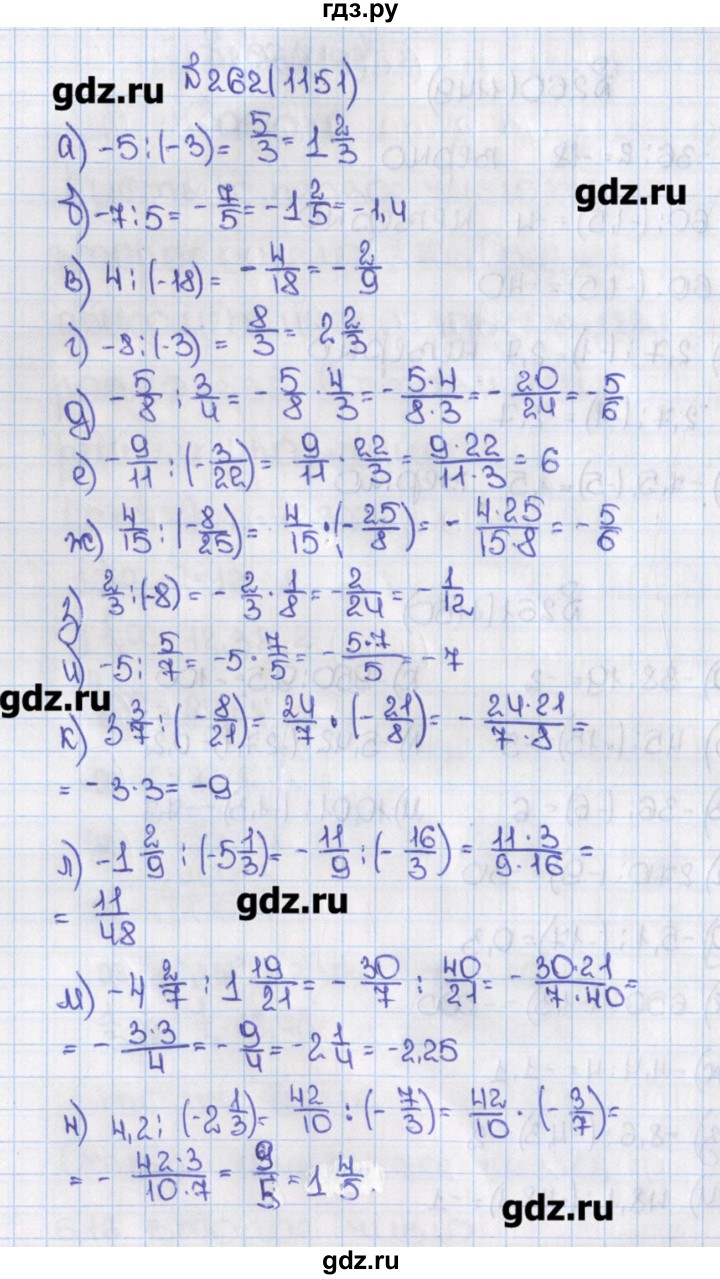 гдз.ру
№262(1151)
gdz.ru
а) -5:(-3)= 5/3 = 1 2/3
gdz.ru
б) -7:5= -7/5 = -1 2/5 = -1,4
в) 4:(-18)= -4/18 = -2/9
г) -8:(-3) = 8/3 = 2 2/3
д) -5/8 : 3/4 = -5/8 · 4/3 = -5·4/8·3 = -20/24 = -5/6
е) -9/11 : (-3/22) = 9/11 · 22/3 = 9·22/11·3 = 6
ж) 4/15 : (-8/25) = 4/15 · (-25/8) = -4·25/15·8 = -5/6
з) 2/3 : (-8) = -2/3 · 1/8 = -2/24 = -1/12
и) -5 : 5/7 = -5 · 7/5 = -5·7/5 = -7
gdz.ru
к) 3 3/7 : (-8/21) = 24/7 · (-21/8) = -24·21/7·8 =
= -3·3 = -9
л) -1 2/9 : (-5 1/3) = -11/9 : (-16/3) = 11·3/9·16 =
= 11/48
gdz.ru
м) -4 2/7 : 1 19/21 = -30/7 : 40/21 = -30·21/7·40 =
= -3·3/4 = -9/4 = -2 1/4 = -2,25
н) 4,2 : (-2 1/3) = 42/10 : (-7/3) = 42/10 · (-3/7) =
= -42·3/10·7 = 9/5 = 1 4/5
gdz.ru
gdz.ru